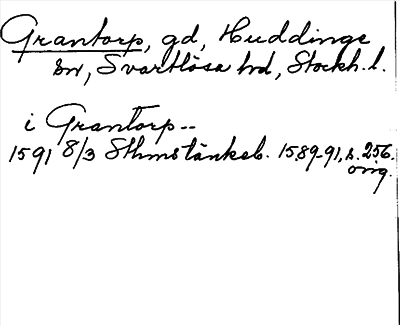 Grantorp, gd, Huddinge
sn, Svartlösa hd, Stockh. l.
i Grantorp--
1591 8/3 Sthms tänkeb. 1589-91, s. 256.
orig.